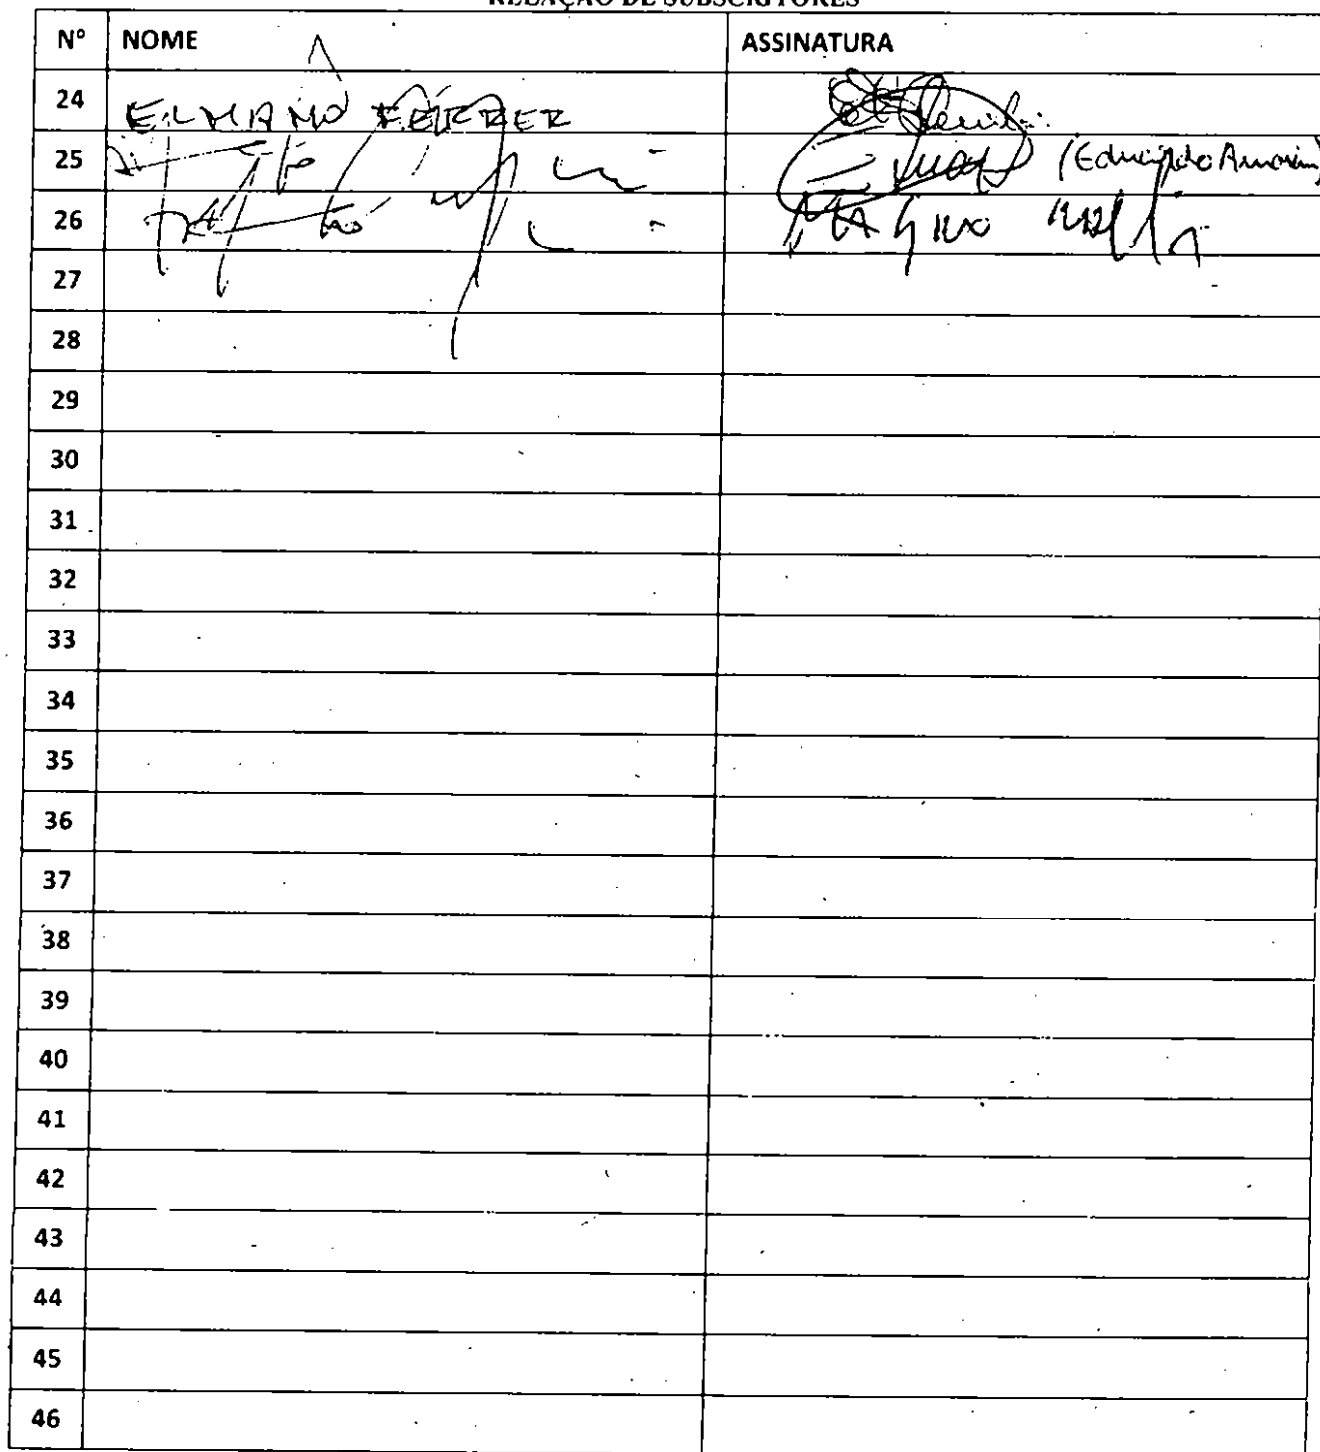 RELAÇÃO DE SUBSCRITORES
Nº NOME ASSINATURA
24 ELMANO FERRER
25 (Eduardo Amorim)
26 MAGNO MALTA
27
28
29
30
31
32
33
34
35
36
37
38
39
40
41
42
43
44
45
46